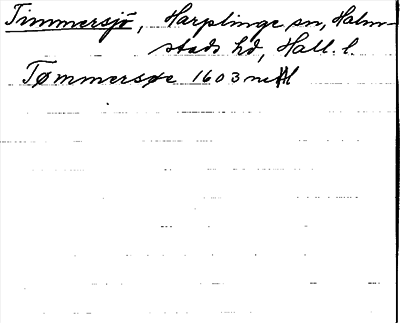 Timmersjö, Harplinge sn, Halm-
stads hd, Hall. l.
Tømmersøe 1603